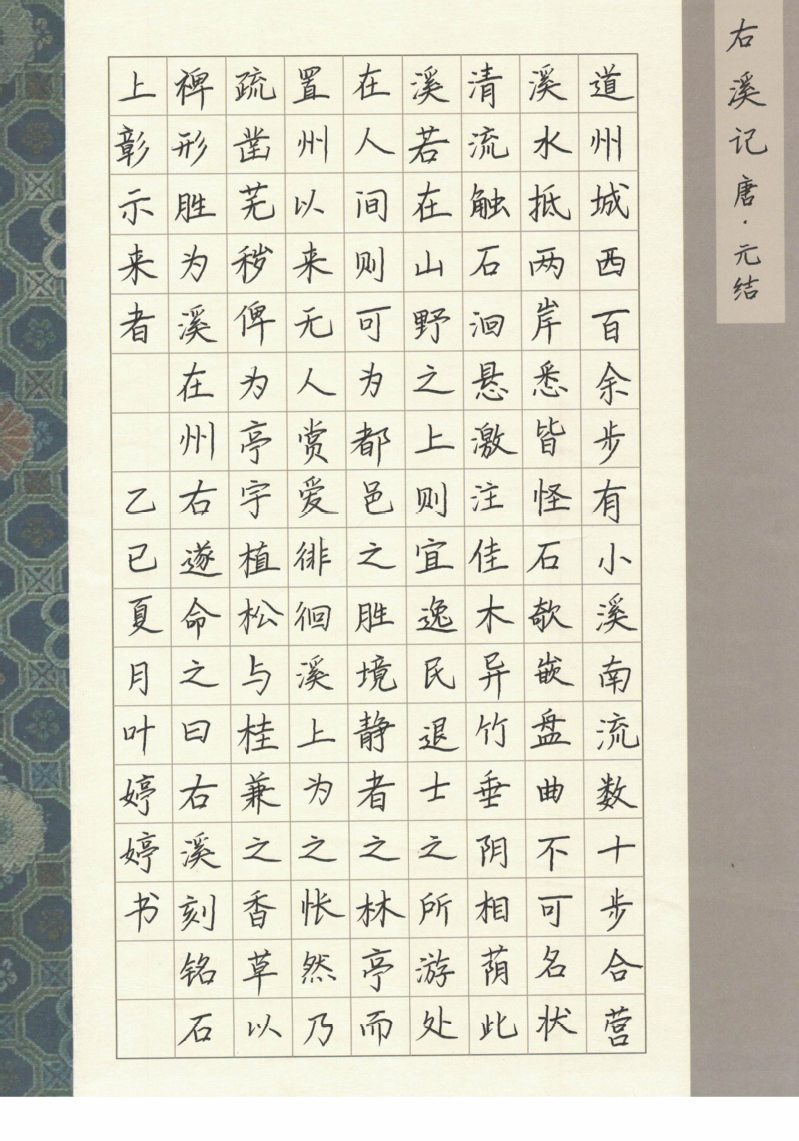 右溪记 唐·元结
道州城西百余步有小溪南流数十步合营
溪水抵两岸悉皆怪石欹嵌盘曲不可名状
清流触石洄悬激注佳木异竹垂阴相荫此
溪若在山野之上则宜逸民退士之所游处
在人间则可为都邑之胜境静者之林亭而
置州以来无人赏爱徘徊溪上为之怅然乃
疏凿芜秽俾为亭宇植松与桂兼之香草以
裨形胜为溪在州右遂命之曰右溪刻铭石
上彰示来者 乙巳夏月叶婷婷书